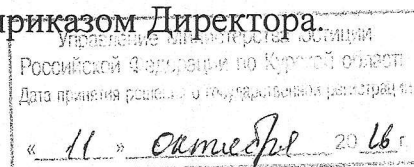 приказом Директора.
Управление Министерства юстиции
Российской Федерации по Курской области
Дата принятия решения о государственной регистрации
« 11 » октября 2016 г.